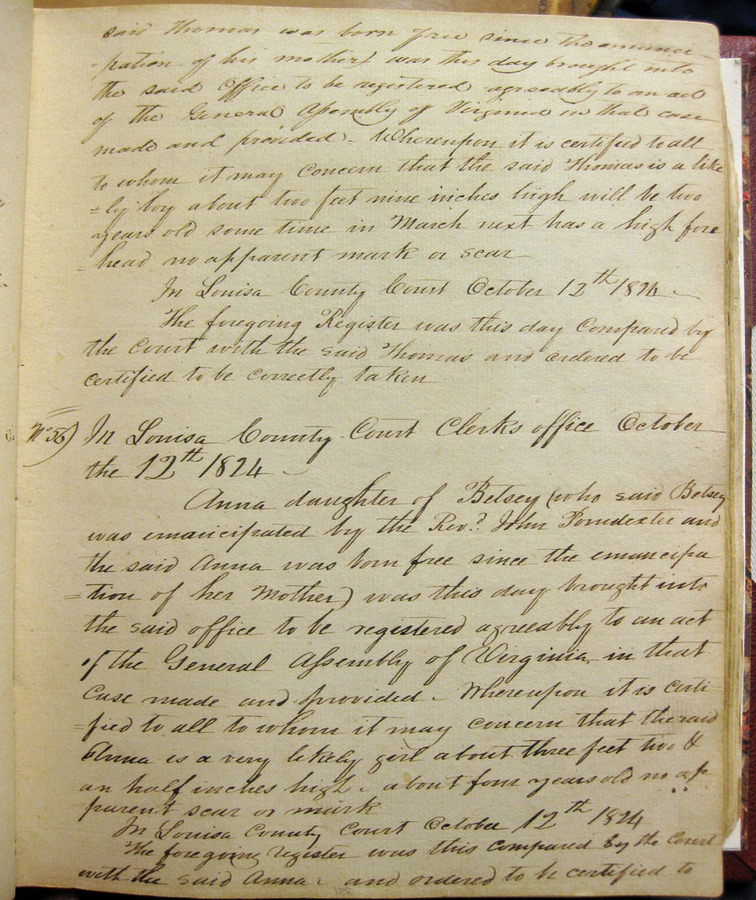 said Thomas was born free since the emanci
-pation of his mother) was this day brought into
the said office to be registered agreeably to an act
of the General Assembly of Virginia in that case
made and provided. Whereupon it is certified to all
to whom it may concern that the said Thomas is a like
=ly boy about two feet nine inches high will be two
years old some time in March next has a high fore
-head no apparent mark or scar
In Louisa County Court October 12th 1824
The foregoing Register was this day compared by
the Court with the said Thomas and ordered to be
certified to be correctly taken
No 56) In Louisa County Court Clerks office October
the 12th 1824
Anna daughter of Betsey (who said Betsey
was emancipated by the Revd. John Poindexter and
the said Anna was born free since the emancipa
=tion of her Mother) was this day brought into
the said office to be registered agreeably to an act
of the General Assembly of Virginia, in that
Case made and provided. Whereupon it is certi
=fied to all to whom it may concern that the said
Anna is a very likely girl about three feet two &
an half inches high. about four years old no ap
parent scar or mark
In Louisa County Court October 12th 1824
The foregoing register was this compared by the Court
with the said Anna. and ordered to be certified to